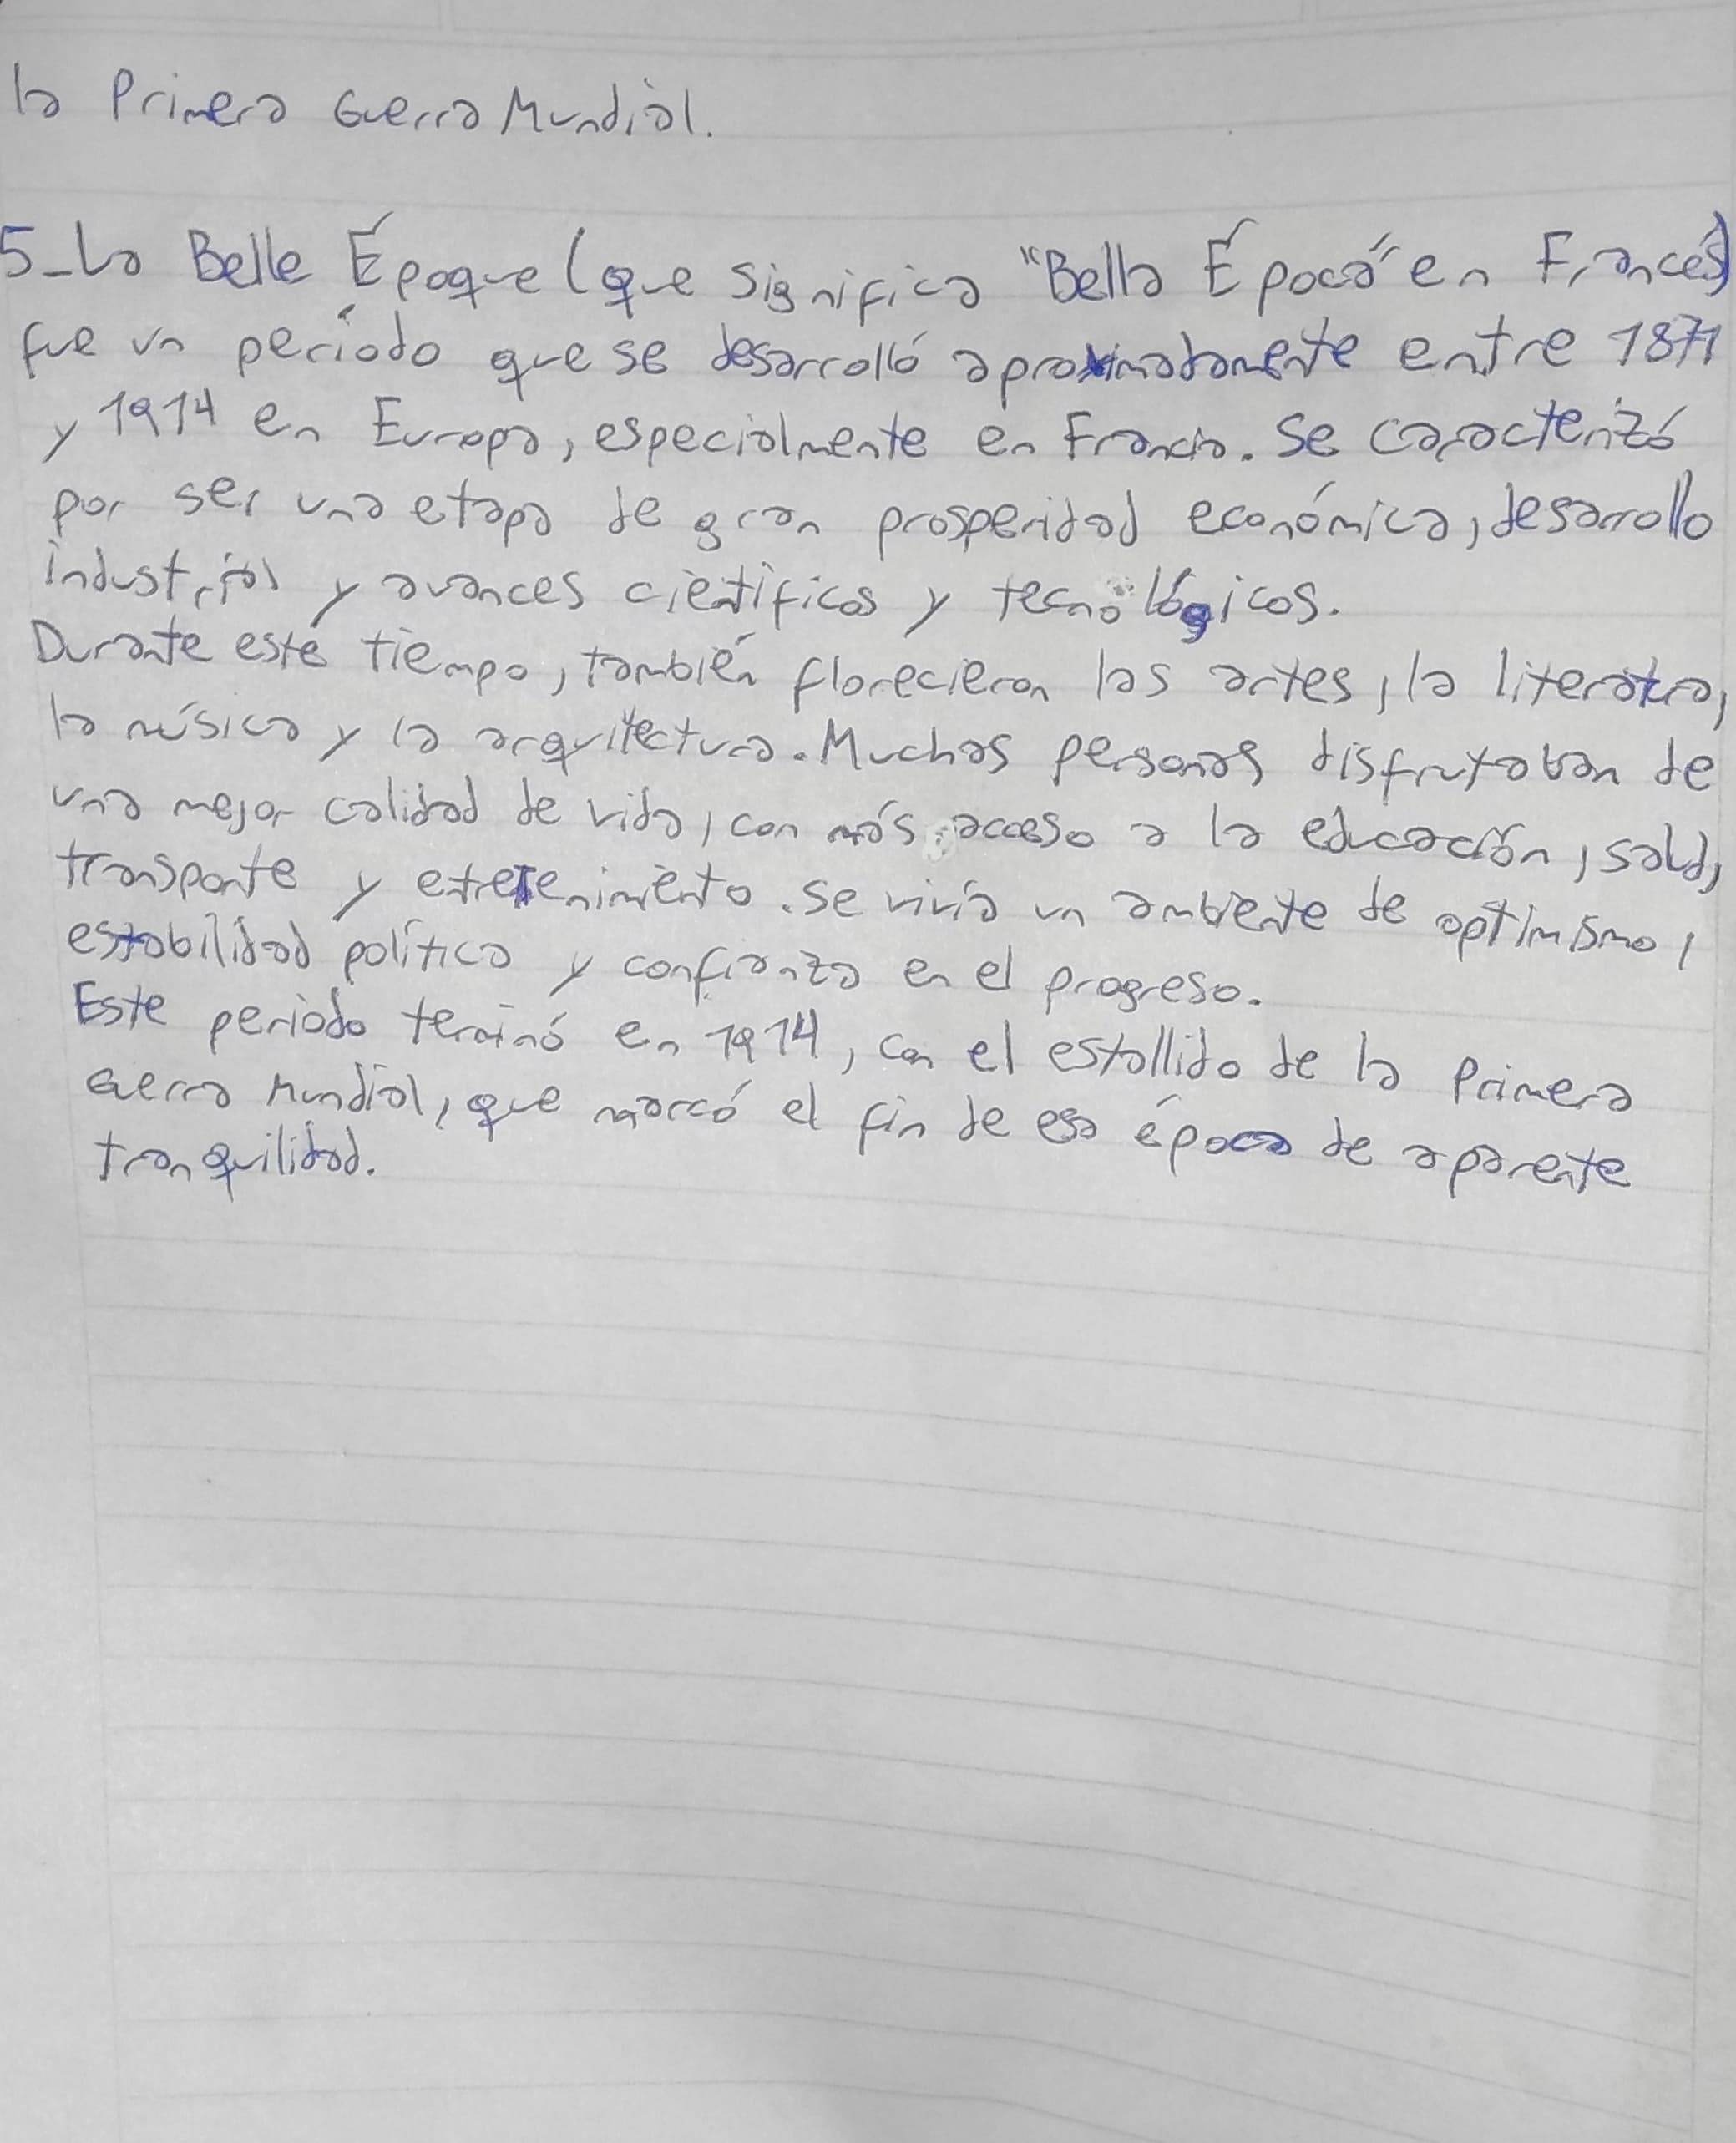 la Primera Guerra Mundial.
5-La Belle Époque (que significa "Bella Época" en Francés)
fue un período que se desarrolló aproximadamente entre 1871
y 1914 en Europa, especialmente en Francia. Se caracterizó
por ser una etapa de gran prosperidad económica, desarrollo
industrial y avances científicos y tecnológicos.
Durante este tiempo, también florecieron las artes, la literatura,
la música y la arquitectura. Muchas personas disfrutaban de
una mejor calidad de vida, con más acceso a la educación, salud,
transporte y entretenimiento. Se vivía un ambiente de optimismo,
estabilidad política y confianza en el progreso.
Este periodo terminó en 1914, con el estallido de la Primera
Guerra Mundial, que marcó el fin de esa época de aparente
tranquilidad.